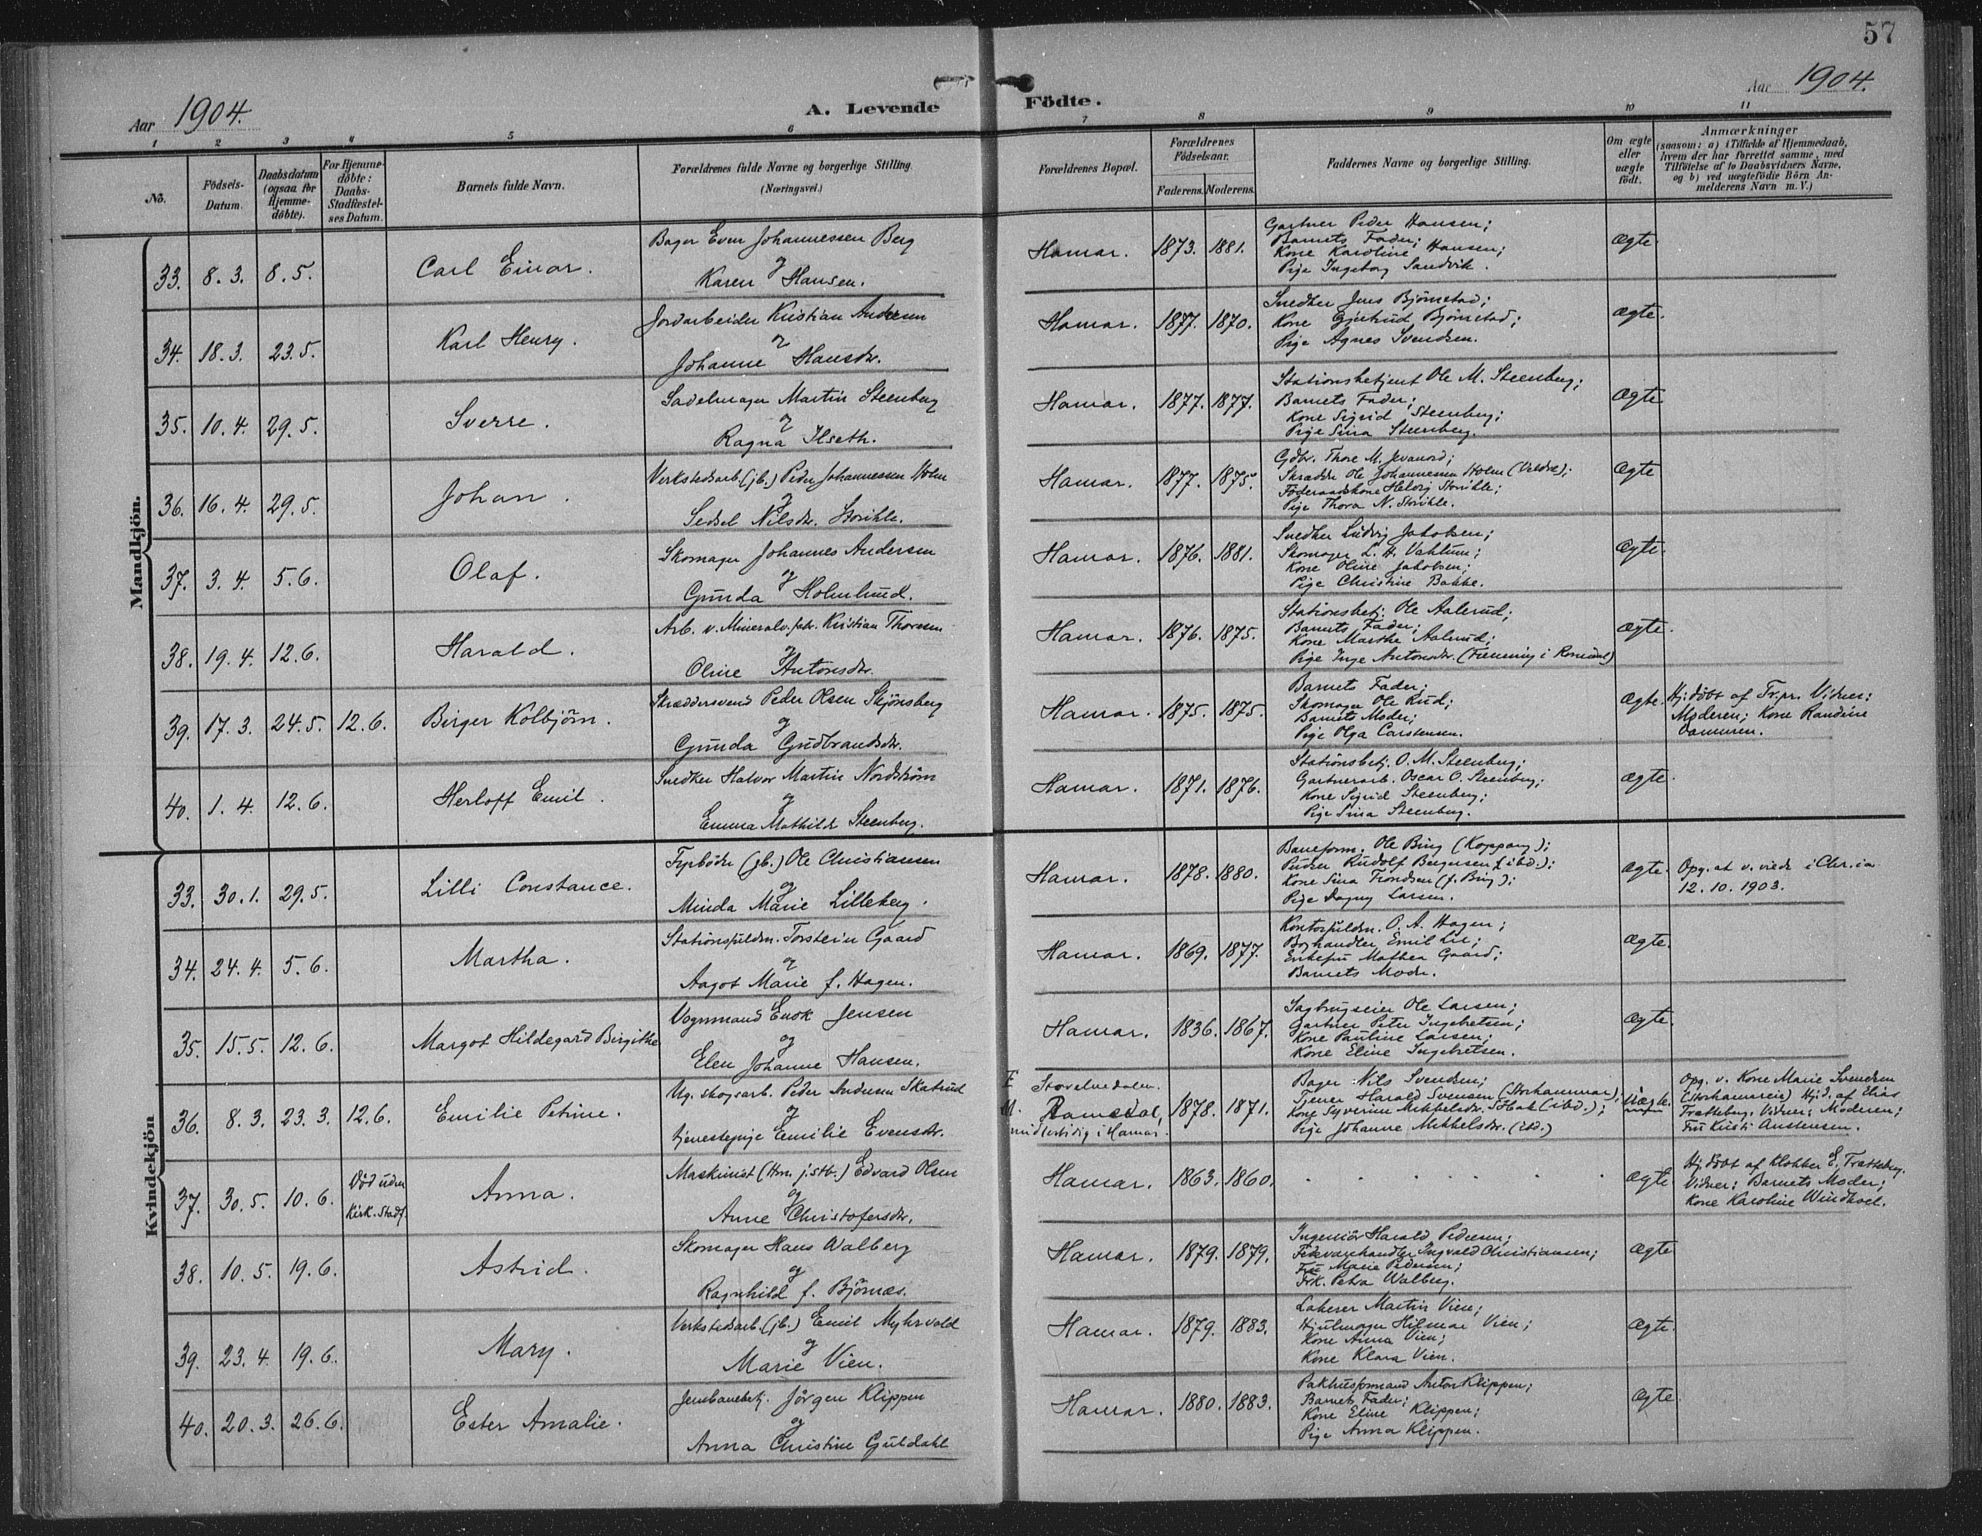 57
Aar 1904.
A. Levende Födte.
Aar 1904.
1 2 3 4 5 6 7 8 9 10 11
No.
Födsels-Datum.
Daabsdatum (ogsaa for Hjemme-döbte).
For Hjemme-döbte: Daabs-Stadfæstel-ses Datum.
Barnets fulde Navn.
Forældrenes fulde Navne og borgerlige Stilling.
(Næringsvei.)
Forældrenes Bopæl.
Forældrenes Födselsaar.
Faderens. Moderens.
Faddernes Navne og borgerlige Stilling.
Om ægte eller uægte födt.
Anmærkninger
(saasom: a) i Tilfælde af Hjemmedaab,
hvem der har forrettet samme, med
Tilföielse af to Daabsvidners Navne,
og b) ved uægtefödte Börn An-
melderens Navn m. V.)
Mandkjön.
33. 8.3. 8.5. Carl Einar.
Bager Even Johannessen Berg
og
Karen Hansen.
Hamar. 1873. 1881.
Gartner Peder Hansen;
Barnets Fader;
Kone Karoline Hansen;
Pige Ingeborg Sandvik.
Ægte.
34. 18.3. 23.5. Karl Henry.
Jordarbeider Kristian Andersen
og
Johanne Hansdr.
Hamar. 1877. 1870.
Snedker Jens Bjørnstad;
Kone Gjertrud Bjørnstad;
Pige Agnes Svendsen.
Ægte.
35. 10.4. 29.5. Sverre.
Sadelmager Martin Steenberg
og
Ragna Ilseth.
Hamar. 1877. 1877.
Stationsbetjent Ole M. Steenberg;
Barnets Fader;
Kone Sigrid Steenberg;
Pige Sina Steenberg.
Ægte
36. 16.4. 29.5. Johan.
Verkstedsarb. (jb.) Peder Johannessen Holm
og
Sedsel Nilsdr. Storihle.
Hamar. 1877. 1875.
Gdbr. Thore M. Jevanord;
Skrædder Ole Johannessen Holm (Veldre);
Föderaadskone Helvig Storihle;
Pige Thora N. Storihle.
Ægte
37. 3.4. 5.6. Olaf.
Skomager Johannes Andersen
og
Gunda Holmlund.
Hamar. 1876. 1881.
Snedker Ludvig Jakobsen;
Skomager L. H. Vahlum;
Kone Oline Jakobsen;
Pige Christine Bakke.
Ægte.
38. 19.4. 12.6. Harald.
Arb. v. Mineralv.fabr. Kristian Thoresen
og
Oline Antonsdr.
Hamar. 1876. 1875.
Stationsbetj. Ole Aalerud;
Barnets Fader;
Kone Marthe Aalerud;
Pige Inga Antonsdr. (Framning i Romedal)
Ægte.
39. 17.3. 24.5. 12.6. Birger Kolbjørn.
Skræddersvend Peder Olsen Skjønsberg
og
Gunda Gudbrandsdr.
Hamar. 1875. 1875.
Barnets Fader;
Skomager Ole Rud;
Barnets Moder;
Pige Olga Carstensen.
Ægte. Hj.döbt af Tr.pr. Vidner:
Moderen; Kone Randine
40. 1.4. 12.6. Herloff Emil.
Snedker Halvor Martin Nordström
og
Emma Mathilde Steenberg.
Hamar. 1871. 1876.
Stationsbetj. O. M. Steenberg;
Gartnerarb. Oscar O. Steenberg;
Kone Sigrid Steenberg;
Pige Sina Steenberg.
Ægte.
Kvindekjön
33. 30.1. 29.5. Lilli Constance.
Fyrböder (jb.) Ole Christiansen
og
Minda Marie Lilleberg.
Hamar. 1878. 1880.
Baneform. Ole Bing (Koppang);
Pudser Rudolf Bergersen (ibd.);
Kone Sina Trondsen (f. Bing);
Pige Dagny Larsen.
Ægte. Opg. at v. viede i Chr.ia
12.10.1903.
34. 24.4. 5.6. Martha.
Stationsfuldm. Torstein Gaard
og
Aagot Marie f. Hagen.
Hamar. 1869. 1877.
Kontorfuldm. O. A. Hagen;
Boghandler Emil Lie;
Enkefru Mathea Gaard;
Barnets Moder.
Ægte.
35. 15.5. 12.6. Margot Hildegard Birgithe
Vognmand Enok Jensen
og
Elen Johanne Hansen.
Hamar. 1836. 1867.
Sagbrugseier Ole Larsen;
Gartner Peter Ingebretsen;
Kone Pauline Larsen;
Kone Eline Ingebretsen.
Ægte.
36. 8.3. 23.3. 12.6. Emilie Petrine.
Ug. skogsarb. Peder Andersen Skatrud
og
tjenestepige Emilie Evensdr.
F Storelvedalen.
M. Romedal,
midlertidig i Hamar. 1878. 1871.
Bager Nils Svendsen;
Tjener Harald Svensen (Storhammar);
Kone Syverine Mikkelsdr. (ibd.);
Pige Johanne Mikkelsdr. (ibd.)
Uægte.
Opg. v. Kone Marie Svendsen
(Storhamareie) Hj.d. af Elias
Trætteberg. Vidner: Moderen;
Fru Kristi Anstensen.
37. 30.5. 10.6. Död uden Kirk. Stadf. Anna.
Maskinist (Hm. j.stb.) Edvard Olsen
og
Anne Christofersdr.
Hamar. 1863. 1860.
Ægte. Hj.döbt af Klokker E. Trætteberg.
Vidner: Barnets Moder;
Kone Karoline Windkoel.
38. 10.5. 19.6. Astrid.
Skomager Hans Walberg
og
Ragnhild f. Bjørnæs.
Hamar. 1879. 1879.
Ingeniör Harald Pedersen;
Fedevarehandler Ingvald Christiansen;
Fru Marie Pedersen;
Frk. Petra Walberg.
Ægte
39. 23.4. 19.6. Mary.
Verkstedsarb. (jb.) Emil Myhrvold
og
Marie Vien.
Hamar. 1879. 1883.
Lakerer Martin Vien;
Hjulmager Hilmar Vien;
Kone Anna Vien;
Kone Klara Vien.
Ægte.
40. 20.3. 26.6. Ester Amalie.
Jernbanebetj. Jörgen Klippen
og
Anna Christine Guldahl
Hamar. 1880. 1883.
Pakhusformand Anton Klippen;
Barnets Fader;
Kone Eline Klippen;
Pige Anna Klippen.
Ægte